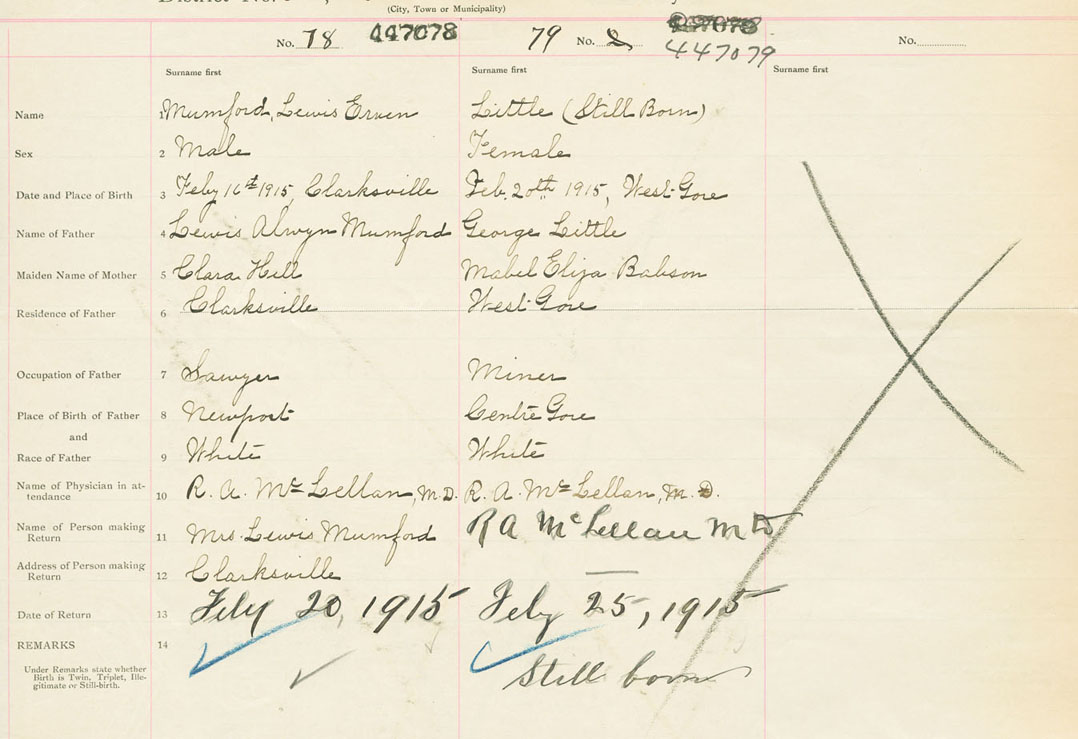 District No.
(City, Town or Municipality)
No. 78 447078 79 No. 2 447079 No.
Surname first Surname first Surname first
Name 1 Mumford, Lewis Erven Little (Still Born)
Sex 2 Male Female
Date and Place of Birth 3 Feby 16th 1915, Clarksville Feb. 20th 1915, West Gore
Name of Father 4 Lewis Alwyn Mumford George Little
Maiden Name of Mother 5 Clara Hill Mabel Eliza Babson
Residence of Father 6 Clarksville West Gore
Occupation of Father 7 Sawyer Miner
Place of Birth of Father 8 Newport Centre Gore
and
Race of Father 9 White White
Name of Physician in at-
tendance 10 R. A. McLellan, M.D. R. A. McLellan, M.D.
Name of Person making
Return 11 Mrs. Lewis Mumford R A McLellan MD
Address of Person making
Return 12 Clarksville —
Date of Return 13 Feby 20, 1915 Feby 25, 1915
REMARKS 14
Under Remarks state whether
Birth is Twin, Triplet, Ille-
gitimate or Still-birth.
Still born